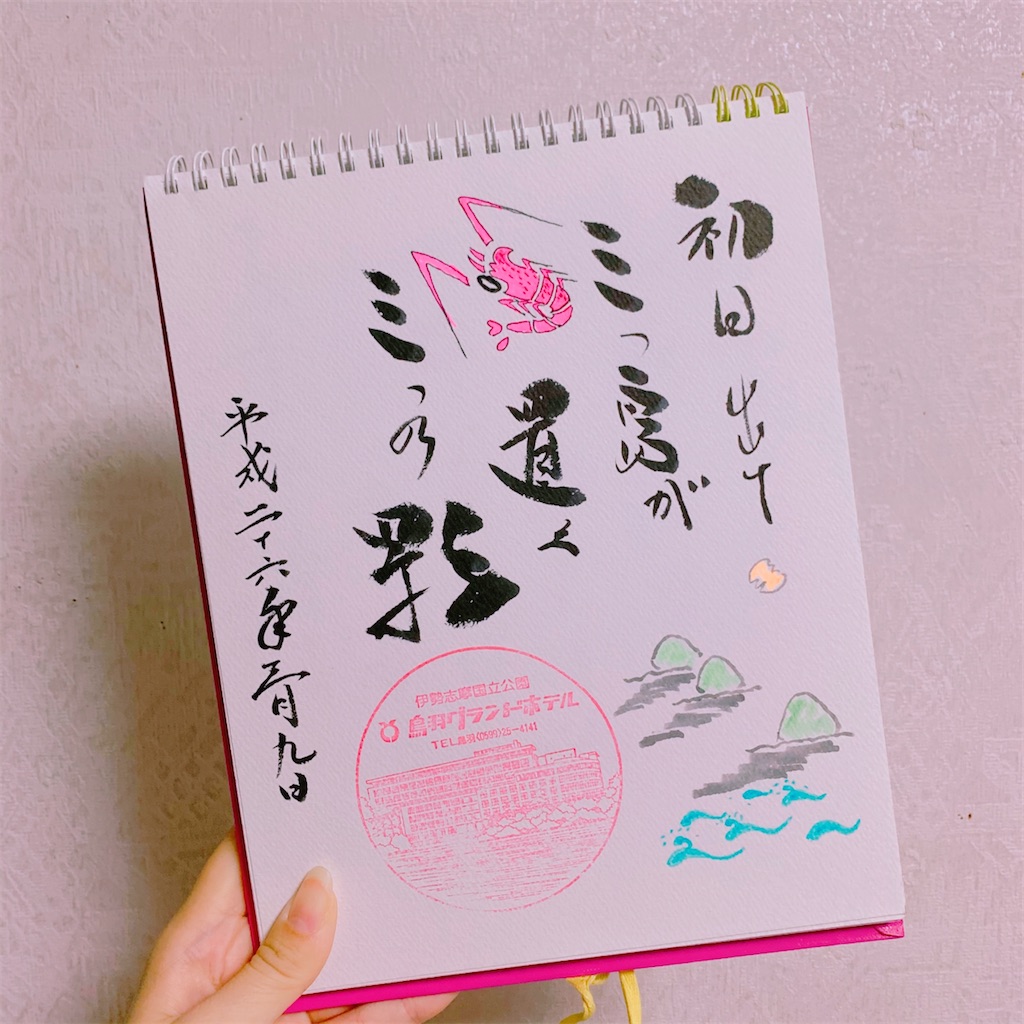 初日出て
三つ島が
置く
三つの影
平成二十六年一月九日
伊勢志摩国立公園
鳥羽グランドホテル
TEL鳥羽(0599)25-4141